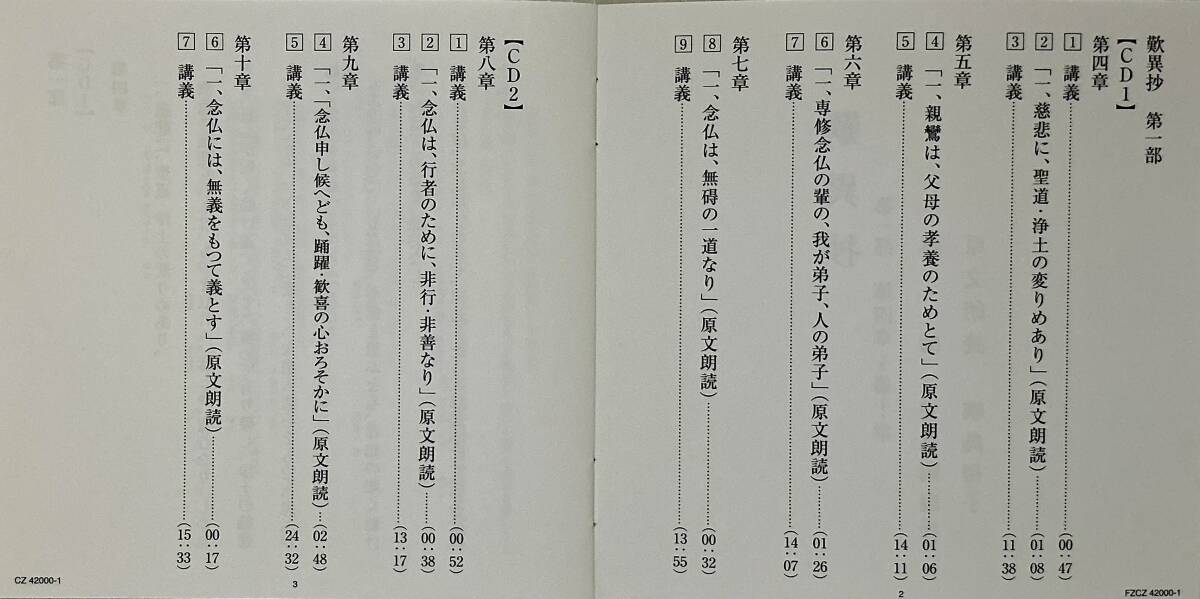 歎異抄　第一部
【CD1】
第四章
1 講義……(00:47)
2 「一、慈悲に、聖道・浄土の変りめあり」(原文朗読)……(01:08)
3 講義……(11:38)
第五章
4 「一、親鸞は、父母の孝養のためとて」(原文朗読)……(01:06)
5 講義……(14:11)
第六章
6 「一、専修念仏の輩の、我が弟子、人の弟子」(原文朗読)……(01:26)
7 講義……(14:07)
第七章
8 「一、念仏は、無碍の一道なり」(原文朗読)……(00:32)
9 講義……(13:55)
2
FZCZ 42000-1
【CD2】
第八章
1 講義……(00:52)
2 「一、念仏は、行者のために、非行・非善なり」(原文朗読)……(00:38)
3 講義……(13:17)
第九章
4 「一、「念仏申し候へども、踊躍・歓喜の心おろそかに」(原文朗読)……(02:48)
5 講義……(24:32)
第十章
6 「一、念仏には、無義をもつて義とす」(原文朗読)……(00:17)
7 講義……(15:33)
3
CZ 42000-1